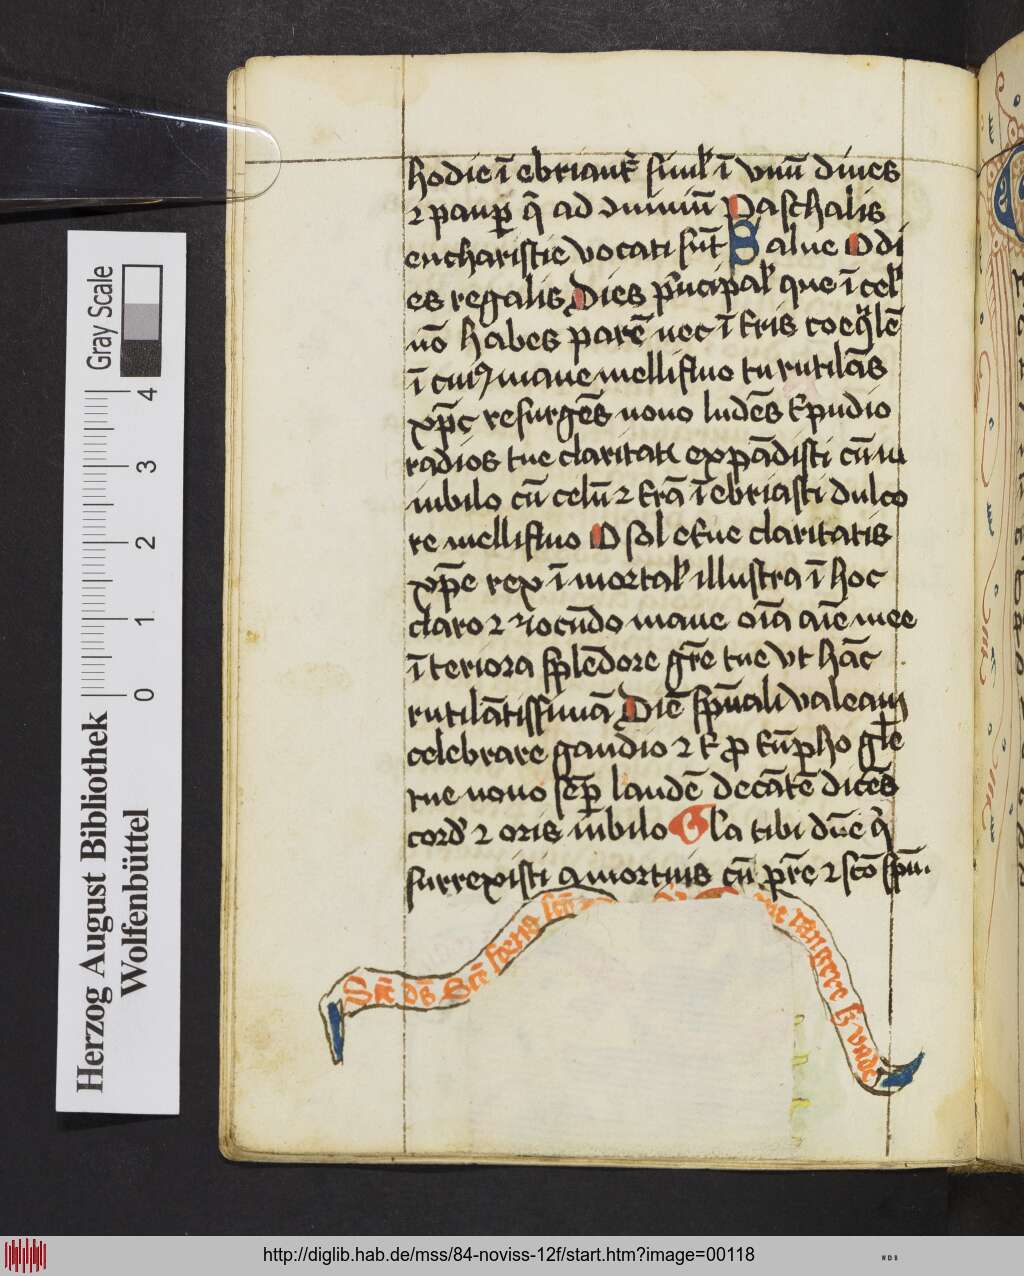 hodie ī ebriant᷑ simul ī vnū diues
⁊ paup̲ q̄ ad ɔuiuiū Paschalis
eucharistie vocati sūt Salue O di
es regalis Dies p᷑ncipal᷑ que ī cel᷑
nō habes parē nec ī t᷑ris coeq̄lē
ī cui⁹ maue mellifluo tu rutilās
xp̄c resurgēs nouo ludēs t᷑pudio
radios tue claritat᷑ expādisti cū iu
iubilo cū celū ⁊ t᷑rā īebriasti dulco
re mellifluo O sol et᷑ne claritatis
xp̄e rex īmortal᷑ illustra ī hoc
claro ⁊ iocūdo mane oīa aīe mee
īteriora splēdore gr̄e tue vt hāc
rutilātissimā Diē sp̄uali valeam
celebrare gaudio ⁊ t᷑ p̲ t᷑ūpho gl̄e
tue nouo sēp̲ laudē decātē dicēs
cord᷑ ⁊ oris iubilo Gl᷑a tibi dn̄e q᷑
surrexisti a mortuis cū pr̄e ⁊ scō sp̄u.
tangere
Herzog August Bibliothek
Wolfenbüttel
0 1 2 3 4
Gray Scale
http://diglib.hab.de/mss/84-noviss-12f/start.htm?image=00118